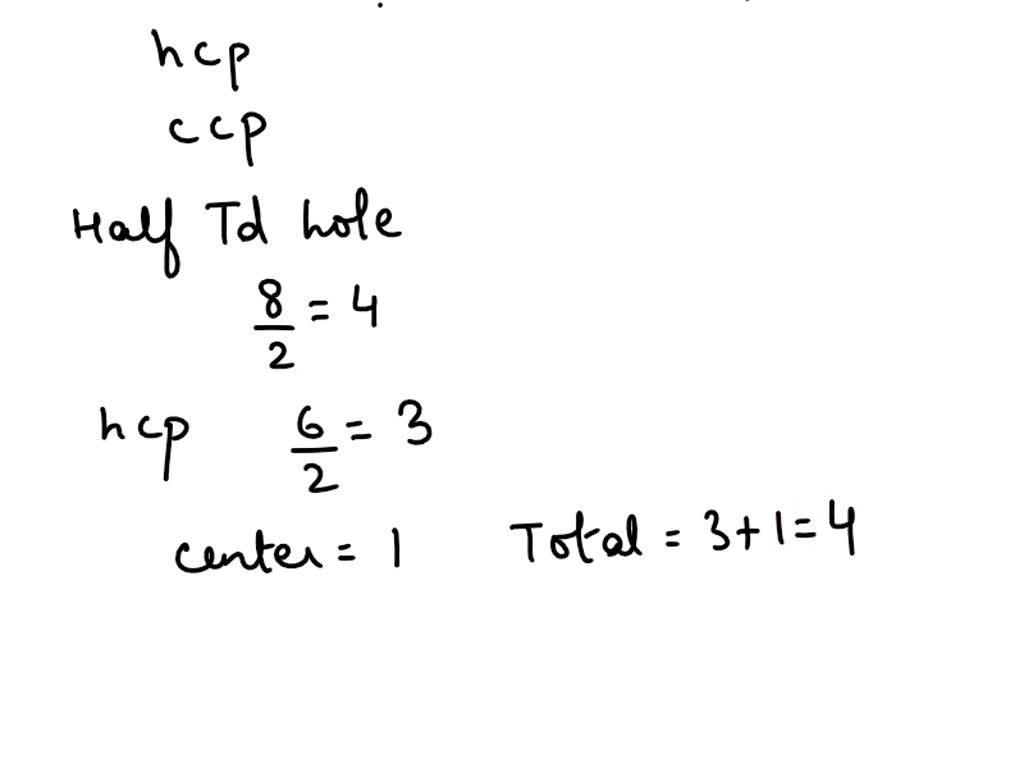 hcp
ccp
Half Td hole
8/2 = 4
hcp 6/2 = 3
center = 1 Total = 3+1=4